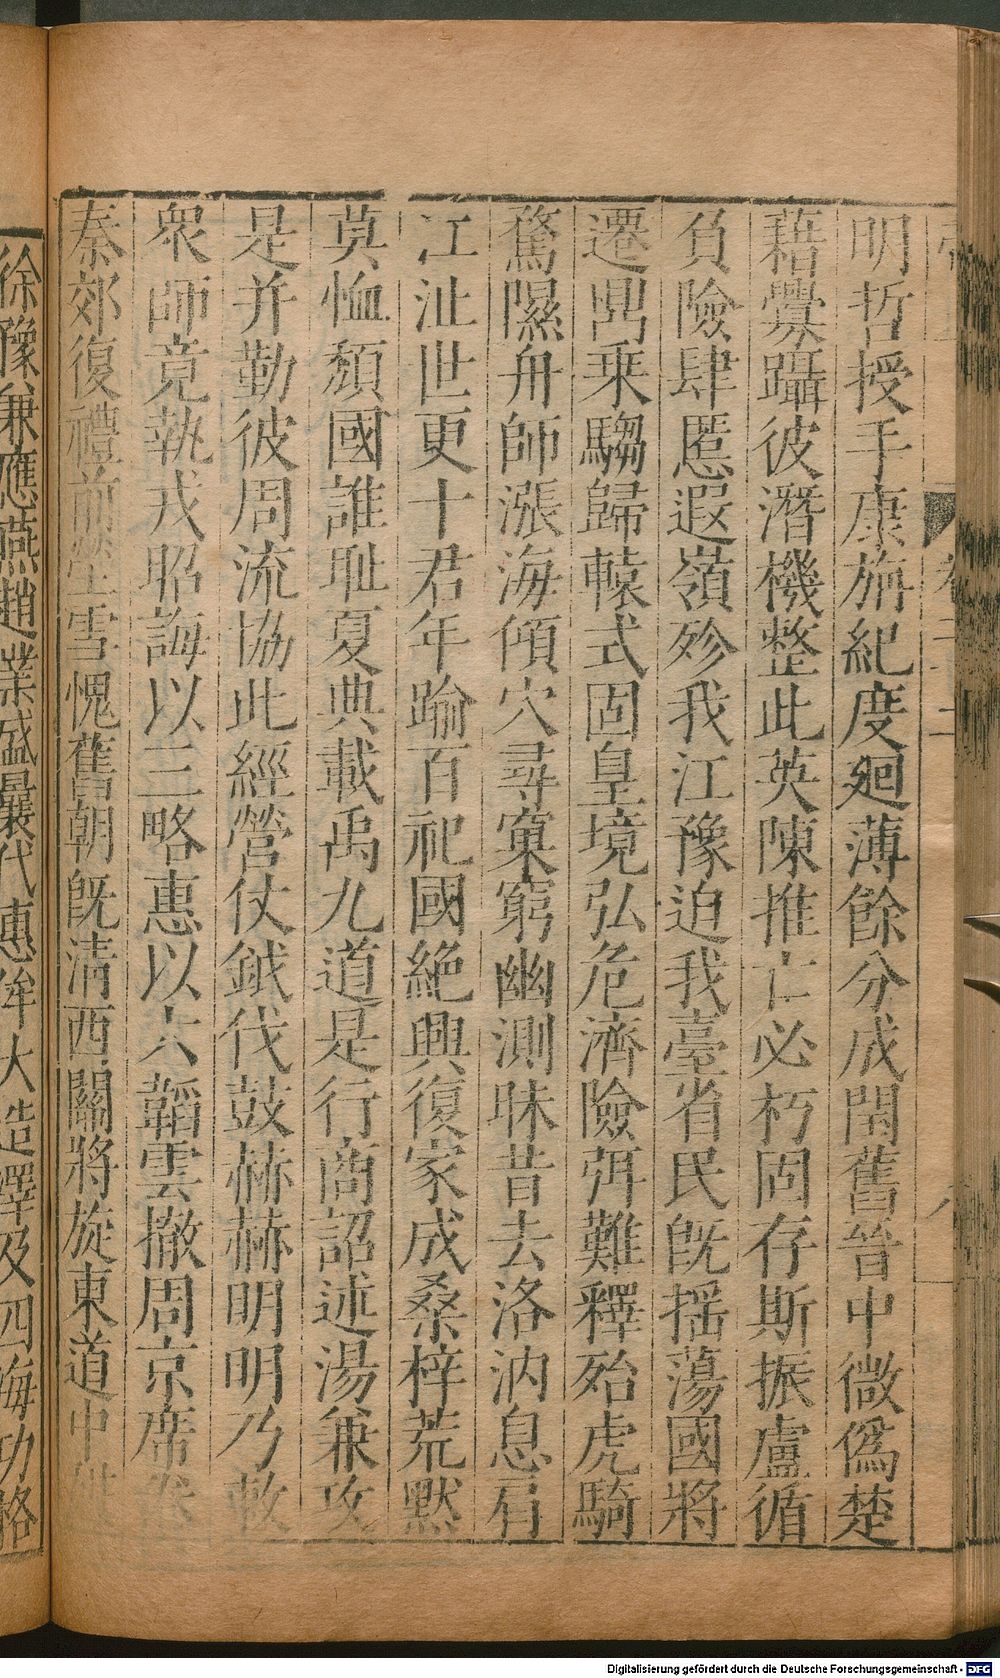 明哲授手康旃紀度廻薄餘分成閏舊晉中微僞楚
藉釁躡彼潛機整此英陳推亡必朽固存斯振盧循
負險肆慝遐嶺殄我江豫迫我臺省民旣揺蕩國將
遷鼎乗騶歸轅式固皇境弘危濟險弭難釋殆虎騎
騖隰舟師漲海傾穴尋窠窮幽測昧昔去洛汭息肩
江沚世更十君年踰百祀國絶興復家成桑梓荒默
莫恤頽國誰耻夏典載禹九道是行商詔述湯兼攻
是并勤彼周流協此經營仗鉞伐鼓赫赫明明乃敕
衆師竟執戎昭誨以三略惠以六韜雲撤周京席卷
秦郊復禮前 雪愧舊朝旣清西關將旋東道中
徐豫兼應燕趙業盛曩代惠侔大造澤及四海功格
Digitalisierung gefördert durch die Deutsche Forschungsgemeinschaft - DFG